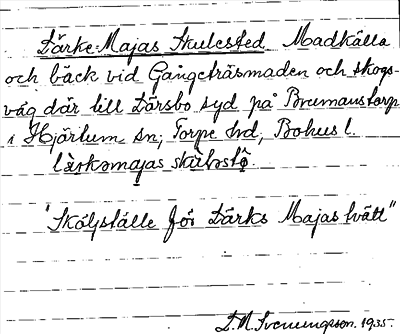 Lärke-Majas Skulested. Madkälla
och bäck vid Gångeträsmaden och skogs-
väg där till Lärsbo syd på Brumanstorp
i Hjärtum sn, Torpe hd, Bohus l.
"Sköljställe för Lärks Majas tvätt"
1935.